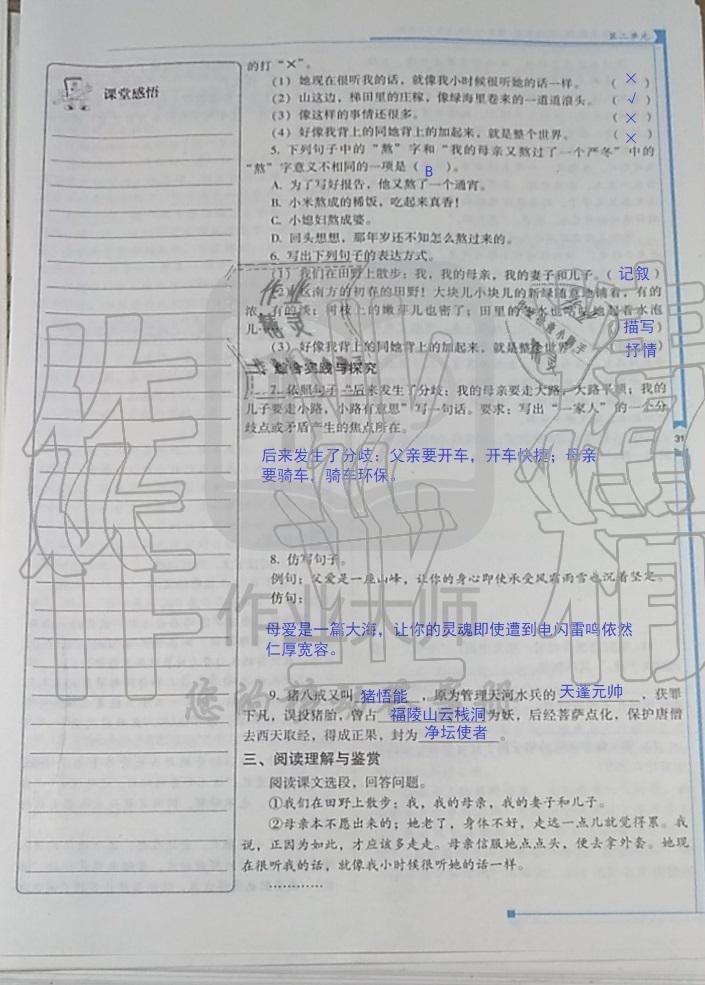 第二单元
课堂感悟
的打“×”。
（1）她现在很听我的话，就像我小时候很听她的话一样。（ × ）
（2）山这边，梯田里的庄稼，像绿海里卷来的一道道浪头。（ √ ）
（3）像这样的事情还很多。（ × ）
（4）好像我背上的同她背上的加起来，就是整个世界。（ × ）
5. 下列句子中的“熬”字和“我的母亲又熬过了一个严冬”中的
“熬”字意义不相同的一项是（ B ）。
A. 为了写好报告，他又熬了一个通宵。
B. 小米熬成的稀饭，吃起来真香！
C. 小媳妇熬成婆。
D. 回头想想，那年岁还不知怎么熬过来的。
6. 写出下列句子的表达方式。
（1）我们在田野上散步：我，我的母亲，我的妻子和儿子。（ 记叙 ）
（2）这南方的初春的田野！大块儿小块儿的新绿随意地铺着，有的
浓，有的淡；树枝上的嫩芽儿也密了；田里的冬水也咕咕地起着水泡
儿（ 描写 ）
（3）好像我背上的同她背上的加起来，就是整个世界（ 抒情 ）
二、综合实践与探究
7. 依照句子“后来发生了分歧：我的母亲要走大路，大路平顺；我的
儿子要走小路，小路有意思”写一句话。要求：写出“一家人”的一个分
歧点或矛盾产生的焦点所在。
31
后来发生了分歧：父亲要开车，开车快捷；母亲
要骑车，骑车环保。
8. 仿写句子。
例句：父爱是一座山峰，让你的身心即使承受风霜雨雪也沉着坚定。
仿句：
母爱是一篇大海，让你的灵魂即使遭到电闪雷鸣依然
仁厚宽容。
9. 猪八戒又叫 猪悟能 ，原为管理天河水兵的 天蓬元帅 ，获罪
下凡，误投猪胎，曾占 福陵山云栈洞 为妖，后经菩萨点化，保护唐僧
去西天取经，得成正果，封为 净坛使者 。
三、阅读理解与鉴赏
阅读课文选段，回答问题。
①我们在田野上散步：我，我的母亲，我的妻子和儿子。
②母亲本不愿出来的；她老了，身体不好，走远一点儿就觉得累。我
说，正因为如此，才应该多走走。母亲信服地点点头，便去拿外套。她现
在很听我的话，就像我小时候很听她的话一样。
…………
作业大师
作业精灵